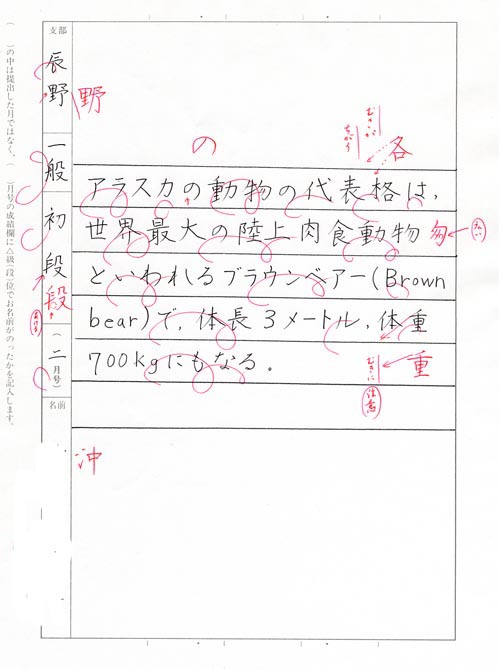 アラスカの動物の代表格は,
世界最大の陸上肉食動物
といわれるブラウンベアー(Brown
bear)で, 体長3メートル, 体重
700kgにもなる。
の
各
重
支部
辰野
野
一般
初段
段
(二月号)
名前
沖
( )の中は提出した月ではなく、( )月号の成績欄に△級(段)位でお名前がのったかを記入します。